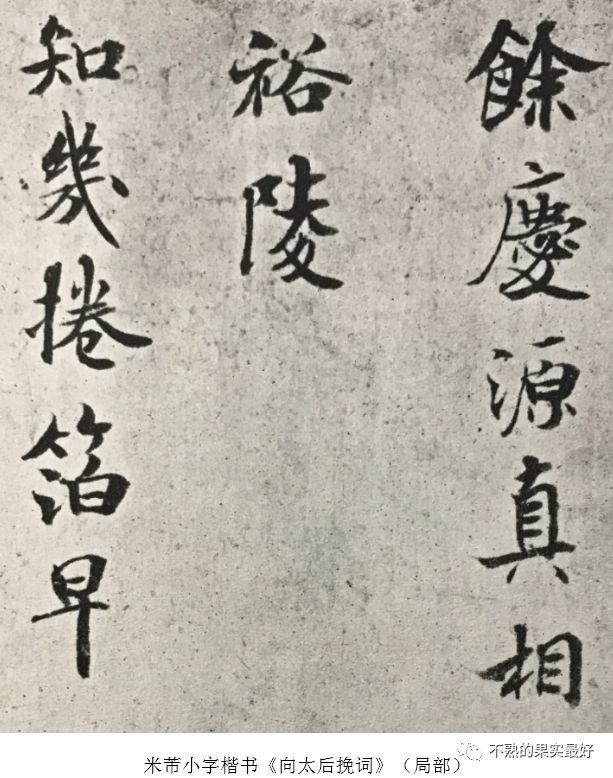 餘慶源真相
裕陵
知幾捲箔早
米芾小字楷书《向太后挽词》（局部）
不熟的果实最好